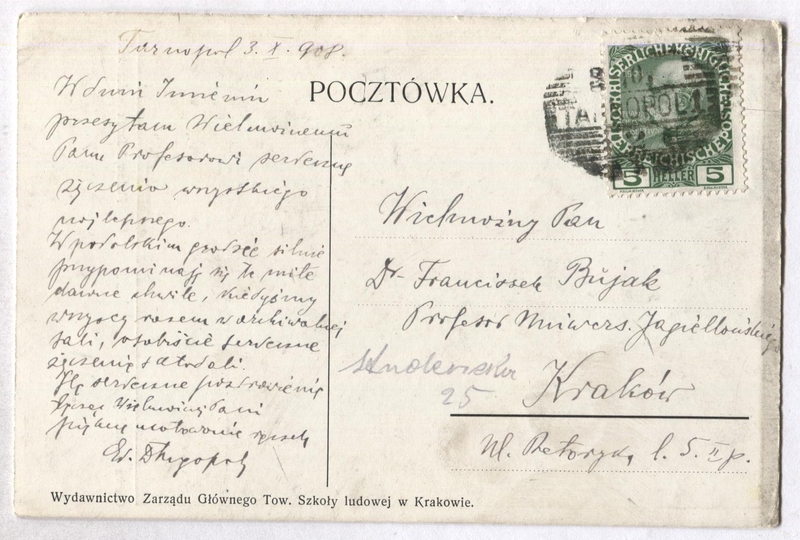 Tarnopol 3. X. 908.
W dniu Imienin
przesyłam Wielmożnemu
Panu Profesorowi serdeczne
życzenia wszystkiego
najlepszego.
W podolskim grodzie silnie
przypominają się te miłe
dawne chwile, kiedyśmy
wszyscy razem w archiwalnej
sali, osobiście serdeczne
życzenia składali.
serdeczne pozdrowienia
Wielmożnej Pani
piękne
Ed. Długopolski
POCZTÓWKA.
TARNOPOL 1
KAISERLICHE KÖNIGLICHE
ÖSTERREICHISCHE POST
5 HELLER 5
Wielmożny Pan
Dr. Franciszek Bujak
Profesor Uniwers. Jagiellońskiego
Studencka
25
Kraków
Ul. Retoryka, l. 5. II p.
Wydawnictwo Zarządu Głównego Tow. Szkoły ludowej w Krakowie.